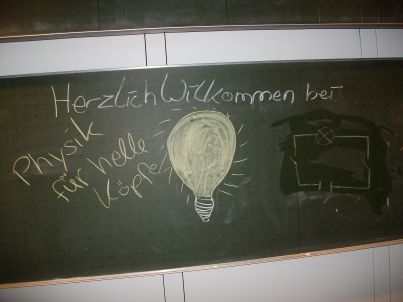 Herzlich Willkommen bei
Physik
für helle
Köpfe